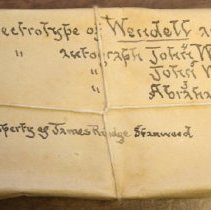 ectrotype of Wendell a
" autograph John W
" John W
" Abraha
perty of James Rindge Stanwood